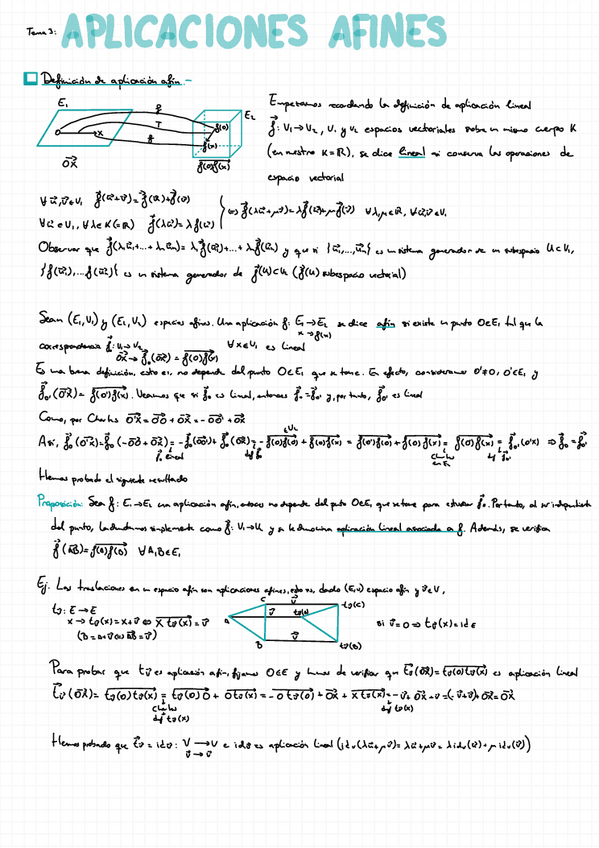 Tema 3: APLICACIONES AFINES
Definición de aplicación afín.-
E₁ f E₂
T
O X f(O)
f f(X)
OX→ f(O)f(X)→
Empezamos recordando la definición de aplicación lineal
f→: V₁→V₂, V₁ y V₂ espacios vectoriales sobre un mismo cuerpo K
(en nuestro K=ℝ), se dice lineal si conserva las operaciones de
espacio vectorial
∀u→,v→∈V₁ f→(u→+v→)=f→(u→)+f→(v→)
∀u→∈V₁, ∀λ∈K(=ℝ) f→(λu→)=λf→(u→)
⟺ f→(λu→+μv→)=λf→(u→)+μf→(v→) ∀λ,μ∈ℝ, ∀u→,v→∈V₁
Observar que f→(λ₁u→₁+...+λₙu→ₙ)=λ₁f→(u→₁)+...+λₙf→(u→ₙ) y que si {u→₁,...,u→ₙ} es un sistema generador de un subespacio U⊂V₁,
{f→(u→₁),...,f→(u→ₙ)} es un sistema generador de f→(U)⊂V₂ (f→(U) subespacio vectorial)
Sean (E₁,V₁) y (E₂,V₂) espacios afines. Una aplicación f: E₁→E₂ se dice afín si existe un punto O∈E₁ tal que la
x→f(x)
correspondencia f→₀: V₁→V₂ ∀X∈E₁ es lineal
OX→ → f→₀(OX→) = f(O)f(X)→
Es una buena definición, esto es, no depende del punto O∈E₁ que se tome. En efecto, consideramos O'≠O, O'∈E₁ y
f→₀'(O'X→)= f(O')f(X)→. Veamos que si f→₀ es lineal, entonces f→₀=f→₀' y, por tanto, f→₀' es lineal
Como, por Charles O'X→=O'O→+OX→=-OO'→+OX→
Así, f→₀(O'X→)=f→₀(-OO'→+OX→)=-f→₀(OO'→)+f→₀(OX→)=-f(O)f(O')→+f(O)f(X)→=f(O')f(O)→+f(O)f(X)→=f(O')f(X)→=f→₀'(O'X→) ⇒ f→₀=f→₀'
f→₀ lineal
def f→₀
Charles en E₂
def f→₀'
Hemos probado el siguiente resultado
Proposición: Sea f: E₁→E₂ una aplicación afín, entonces no depende del punto O∈E₁ que se tome para estudiar f→₀. Por tanto, al ser independiente
del punto, la denotamos simplemente como f→: V₁→V₂ y se le denomina aplicación lineal asociada a f. Además, se verifica
f→(AB→)=f(A)f(B)→ ∀A,B∈E₁
Ej. Las traslaciones en un espacio afín son aplicaciones afines, esto es, dado (E,V) espacio afín y v→∈V,
t_v: E→E
x→t_v(x)=x+v→ ⟺ x t_v(x)→=v→
(B=A+v→ ⟺ AB→=v→)
A B C
v→ v→ v→
t_v(A) t_v(B) t_v(C)
Si v→=0 ⇒ t_v(x)=id_E
Para probar que t_v es aplicación afín, fijamos O∈E y hemos de verificar que t→_v(OX→)=t_v(O)t_v(X)→ es aplicación lineal
t→_v(OX→)=t_v(O)t_v(X)→=t_v(O)O→+Ot_v(X)→=-Ot_v(O)→+OX→+Xt_v(X)→=-v→+OX→+v→=(-v→+v→)+OX→=OX→
Charles
def t_v(X)
def t_v(X)
Hemos probado que t→_v=id_V: V→V e id_V es aplicación lineal (id_V(λu→+μv→)=λu→+μv→=λid_V(u→)+μid_V(v→))
v→→v→